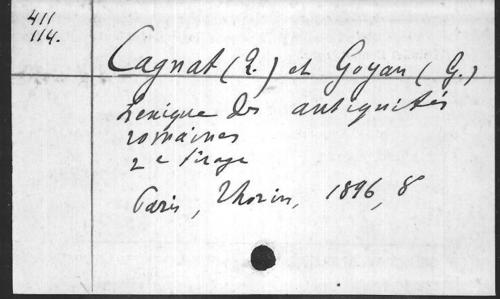 411
114.
Cagnat (R.) et Goyau (G.)
Lexique des antiquités
romaines
2e tirage
Paris, Thorin, 1896, 8